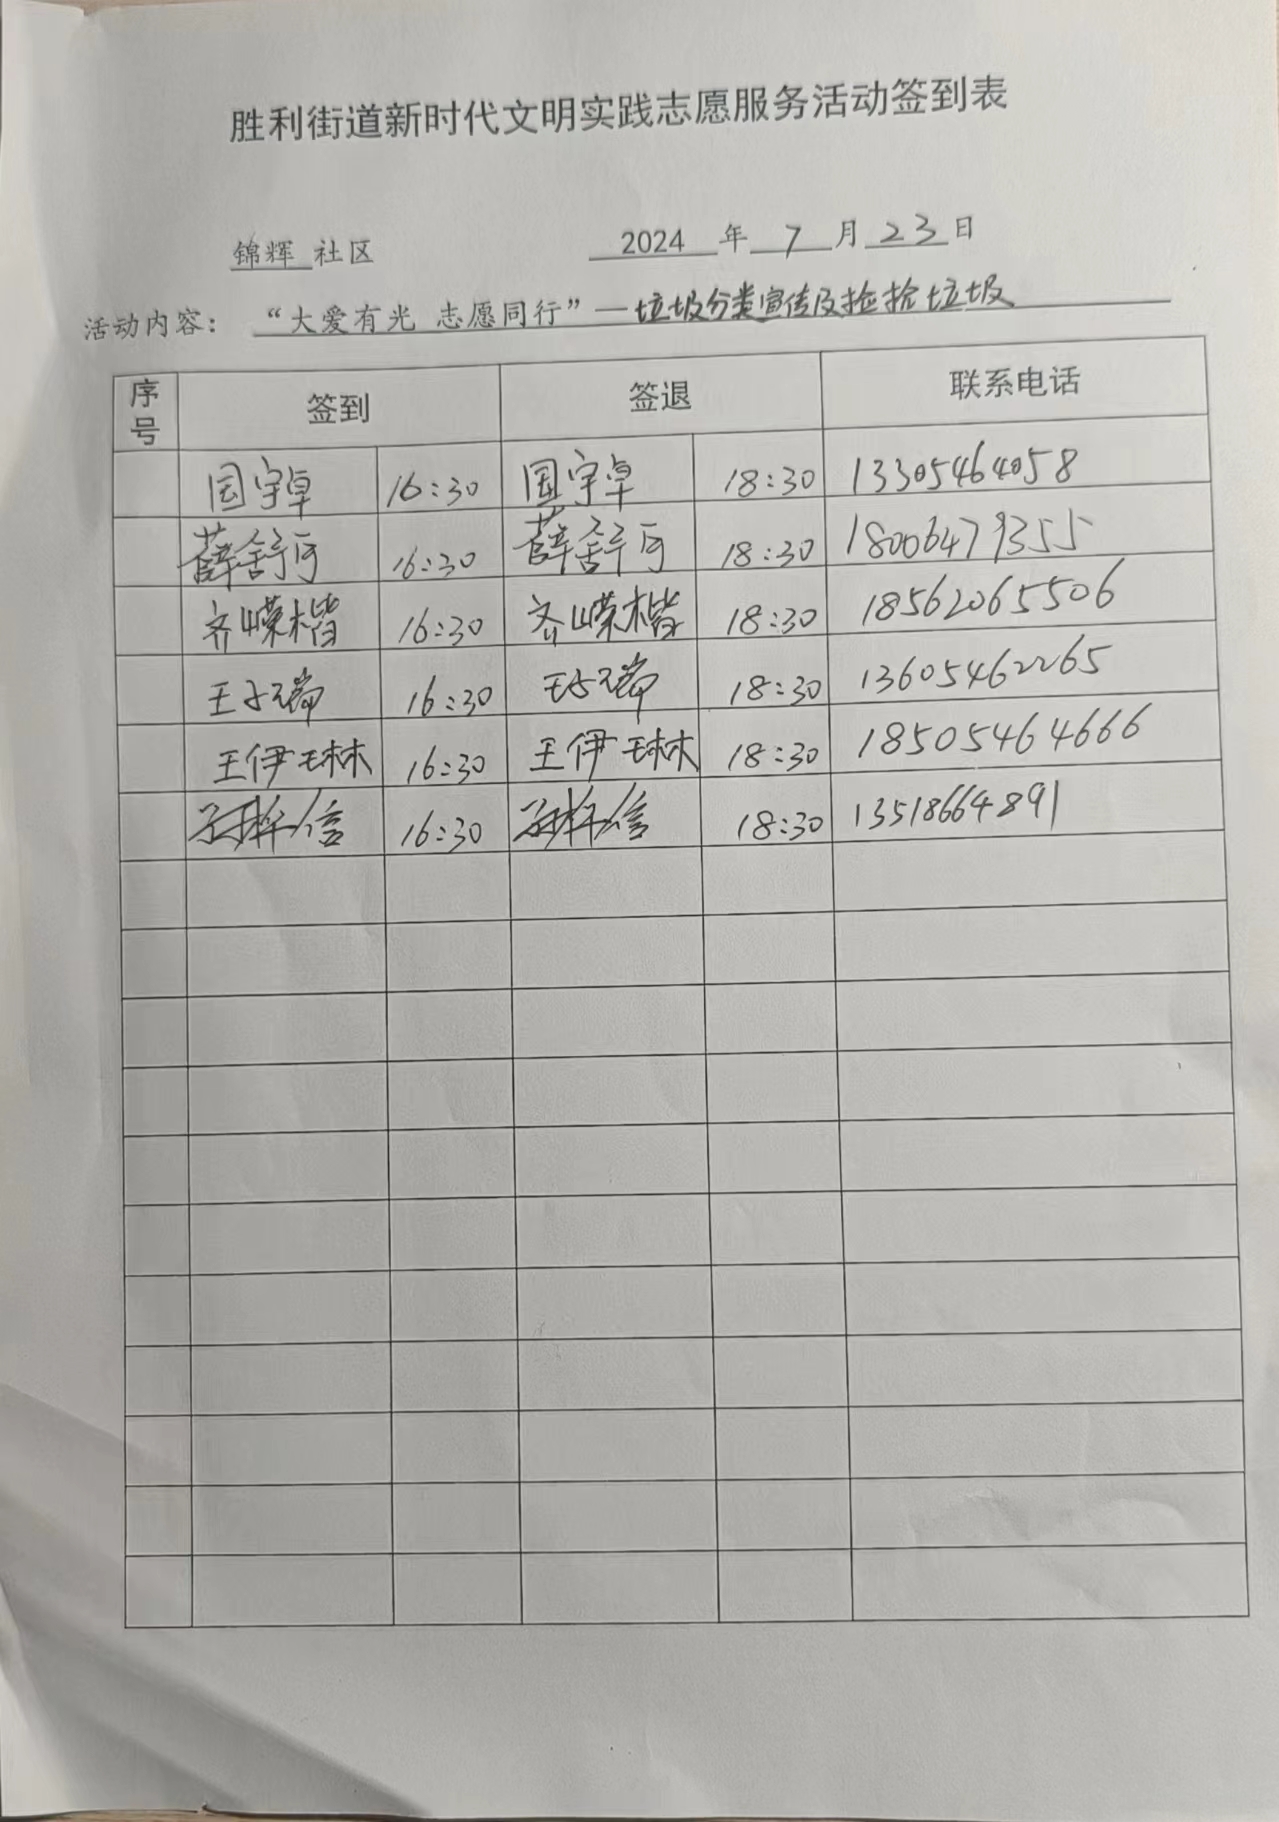 胜利街道新时代文明实践志愿服务活动签到表
锦辉 社区 2024 年 7 月 23 日
活动内容： “大爱有光 志愿同行”—垃圾分类宣传及捡拾垃圾
序号 签到 签退 联系电话
国宇卓 16:30 国宇卓 18:30 13305464058
薛舒可 16:30 薛舒可 18:30 18006479355
齐嵘楷 16:30 齐嵘楷 18:30 18562065506
王子瑞 16:30 王子瑞 18:30 13605462265
王伊琳 16:30 王伊琳 18:30 18505464666
16:30 18:30 13518664891